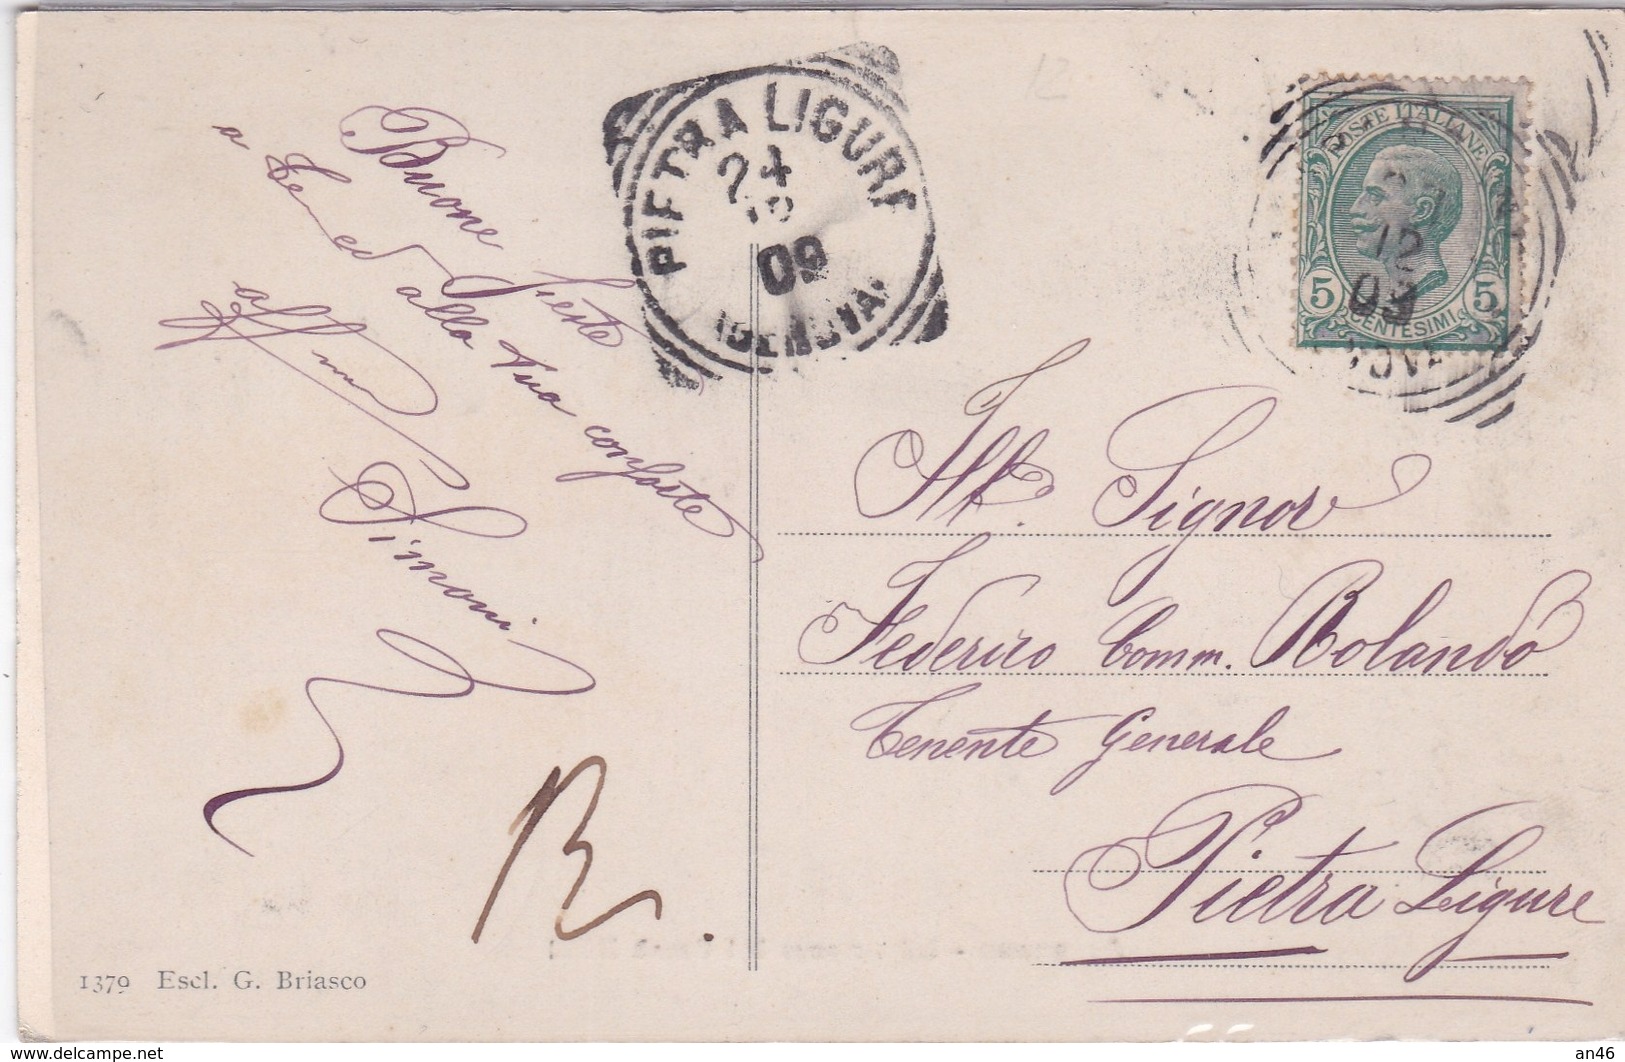 Buone Feste
a Te ed alla Tua consorte
aff mo
Simoni
R.
1379 Escl. G. Briasco
PIETRA LIGURE
24
12
09
(GENOVA)
POSTE ITALIANE
12
09
5 CENTESIMI 5
Ill. Signor
Federico Comm. Rolando
Tenente Generale
Pietra Ligure
www.delcampe.net
an46